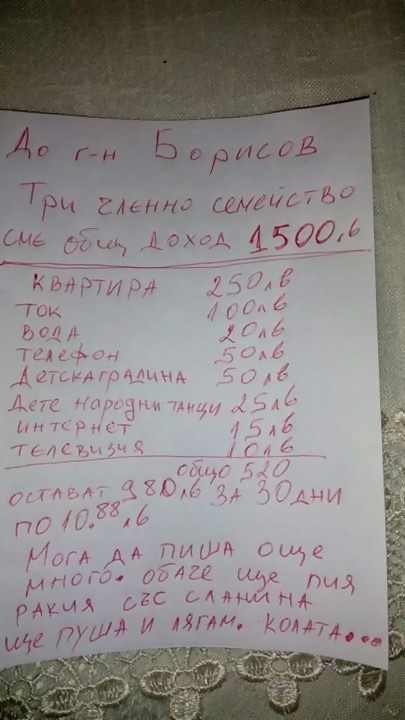 До г-н Борисов
Три членно семейство
сме общ доход 1500лв
КВАРТИРА 250лв
ТОК 100лв
ВОДА 20лв
ТЕЛЕФОН 50лв
ДЕТСКАГРАДИНА 50лв
Дете народни танци 25лв
ИНТЕРНЕТ 15лв
ТЕЛЕВИЗИЯ 10лв
общо 520
ОСТАВАТ 980лв ЗА 30 ДНИ
ПО 10.88лв
Мога да пиша още
много. обаче ще пия
ракия със сланина
ще пуша и лягам. колата....